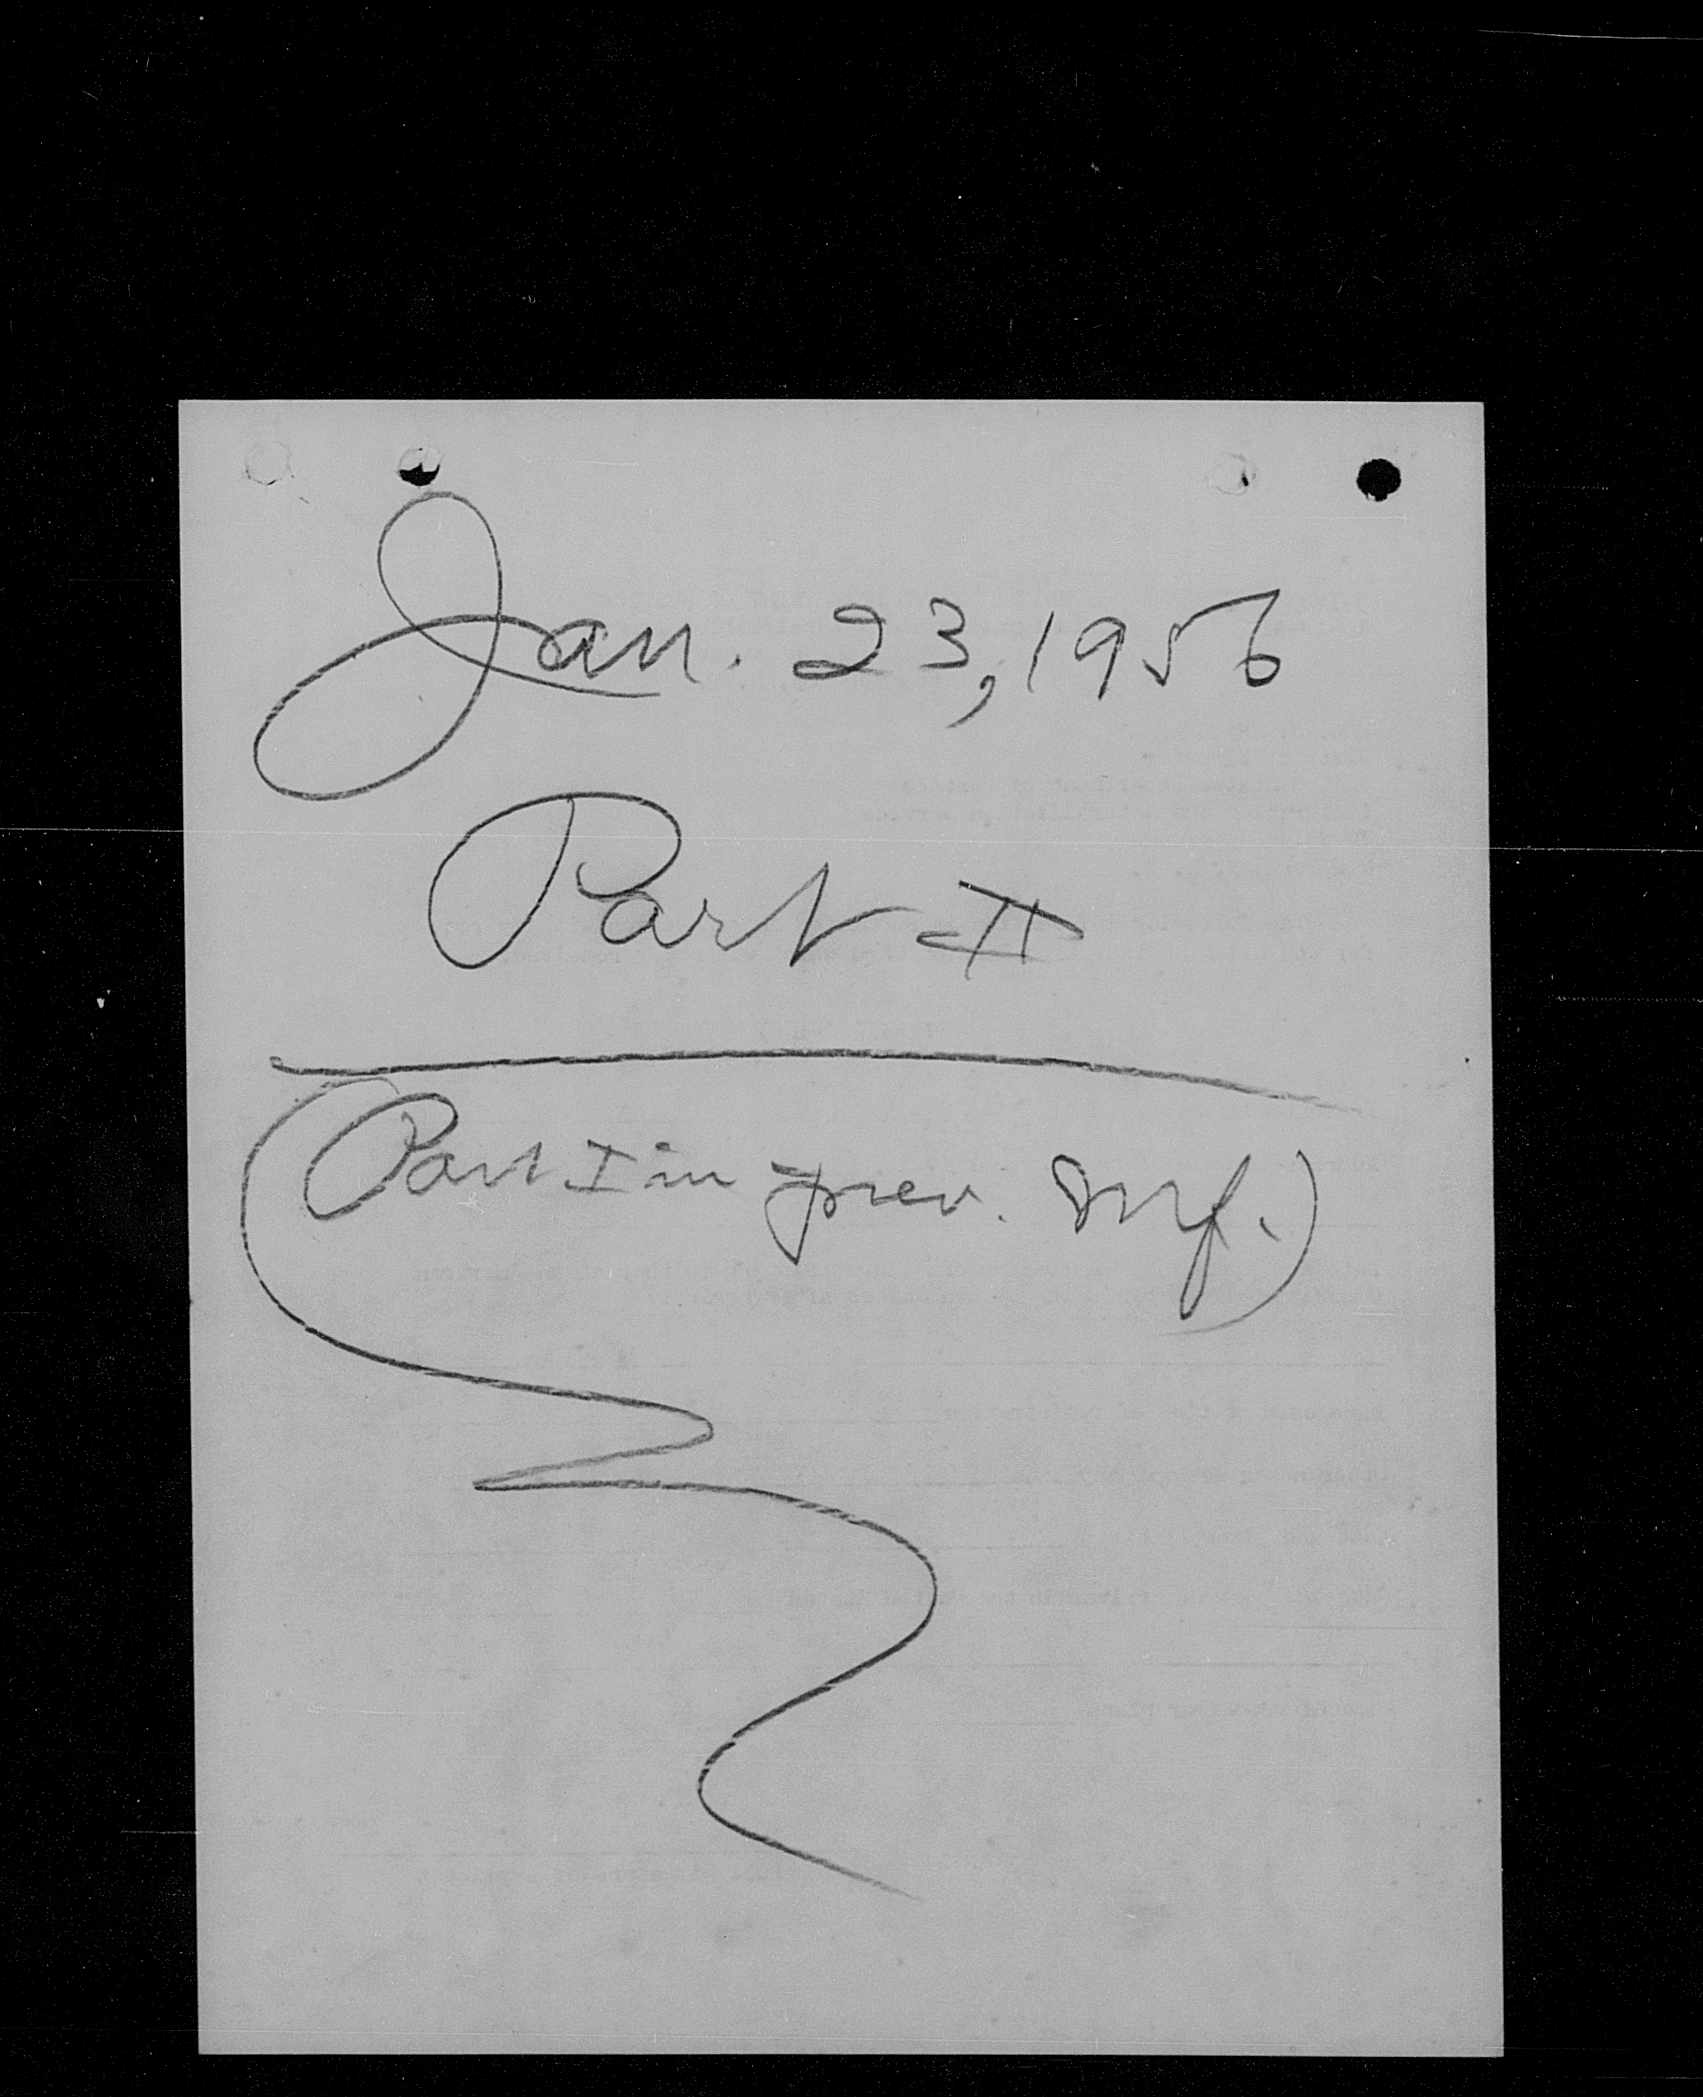 Jan. 23, 1956
Part II
(Part I in prev. Mf.)